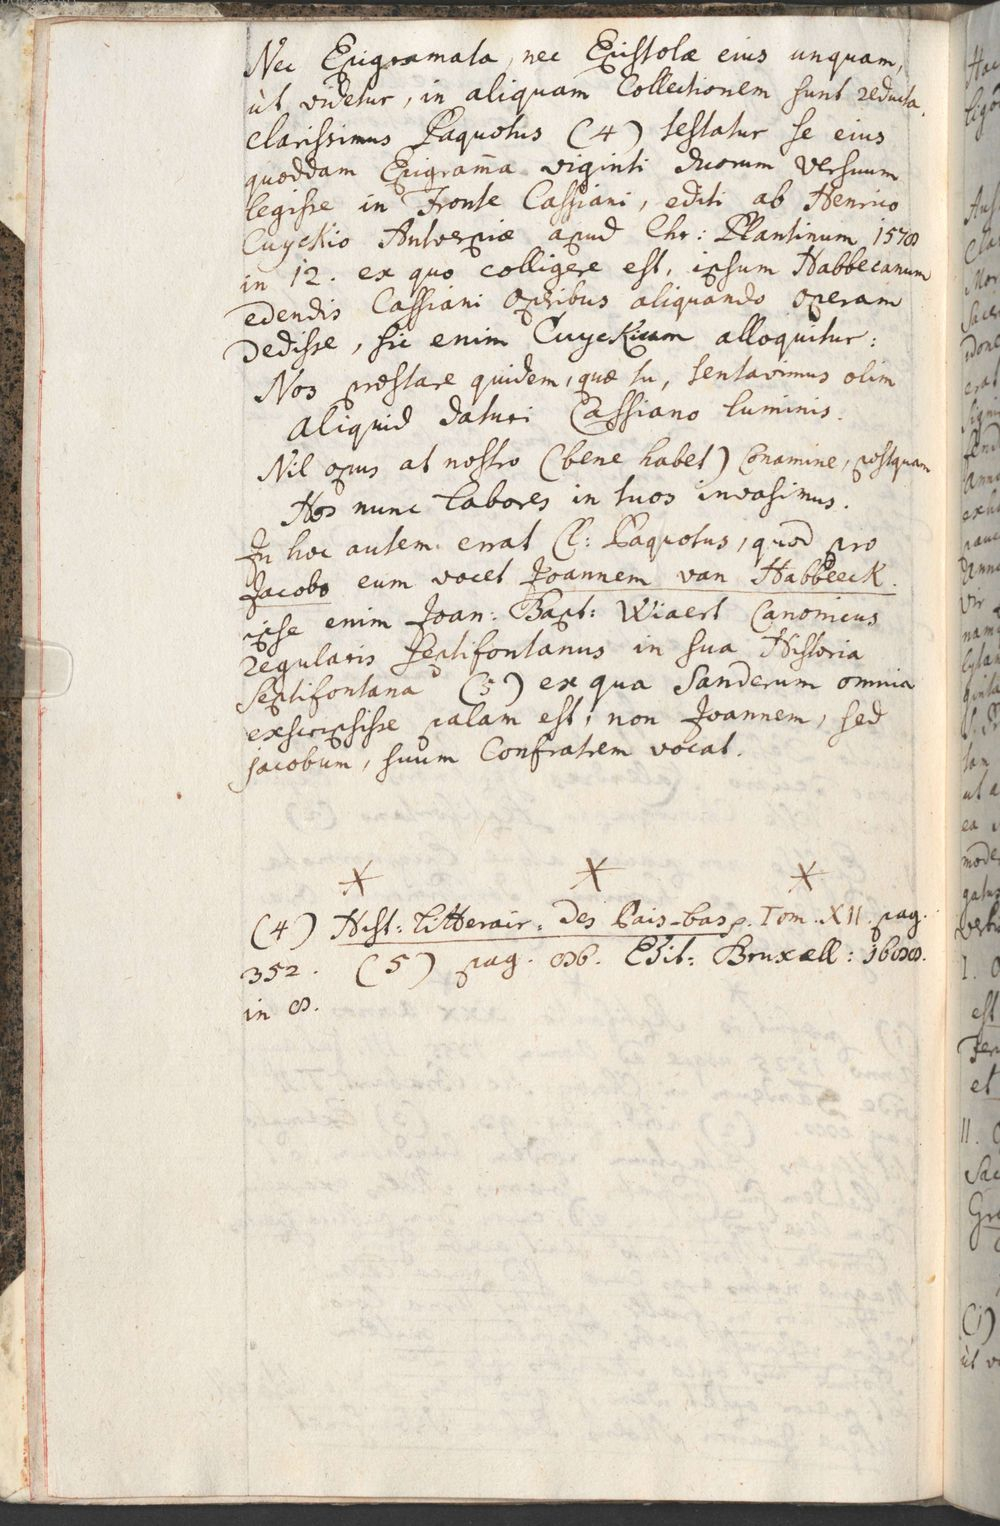 Nec Epigramata, nec Epistolæ eius unquam,
ùt videtur, in aliquam Collectionem sunt reducta.
clarissimus Paquotus (4) testatur se eius
quoddam Epigram̄a viginti duorum versuum
legisse in Fronte Cassiani, editi ab Henrico
Cuyckio Antverpiæ apud Chr: Plantinum 1578
in 12. ex quo colligere est, ipsum Habbecanum
edendis Cassiani Operibus aliquando operam
dedisse, sic enim Cuyckium alloquitur:
Nos præstare quidem, quæ tu, tentavimus olim
aliquid daturi Cassiano luminis.
Nil opus at nostro (bene habet) Conamine, postquam
Hos nunc labores in tuos invasimus.
In hoc autem errat Cl: Paquotus, quod pro
Jacobo eum vocet Joannem van Habbeeck.
ipse enim Joan: Bapt: Wiaert Canonicus
regularis Septifontanus in sua Historia
Septifontana (5) ex qua Sanderum omnia
exscripsisse palam est, non Joannem, sed
jacobum, suum Confratrem vocat.
(4) Hist: litterair: des Pais-bas. Tom. XII. pag.
352. (5) pag. 86. Edit: Bruxell: 1688.
in 8.